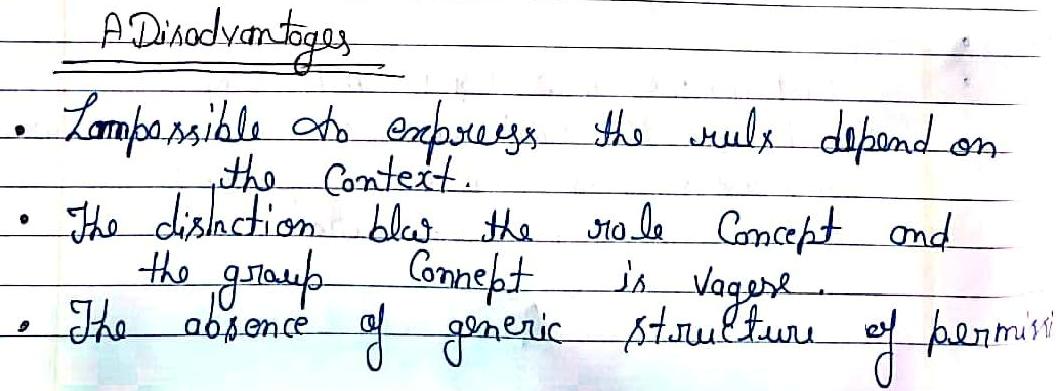 A Disadvantages
• Impossible to express the rulx depend on
the Context.
• The distnction blw the role Concept and
the group Connept is Vagere.
• The absence of generic structure of permissi